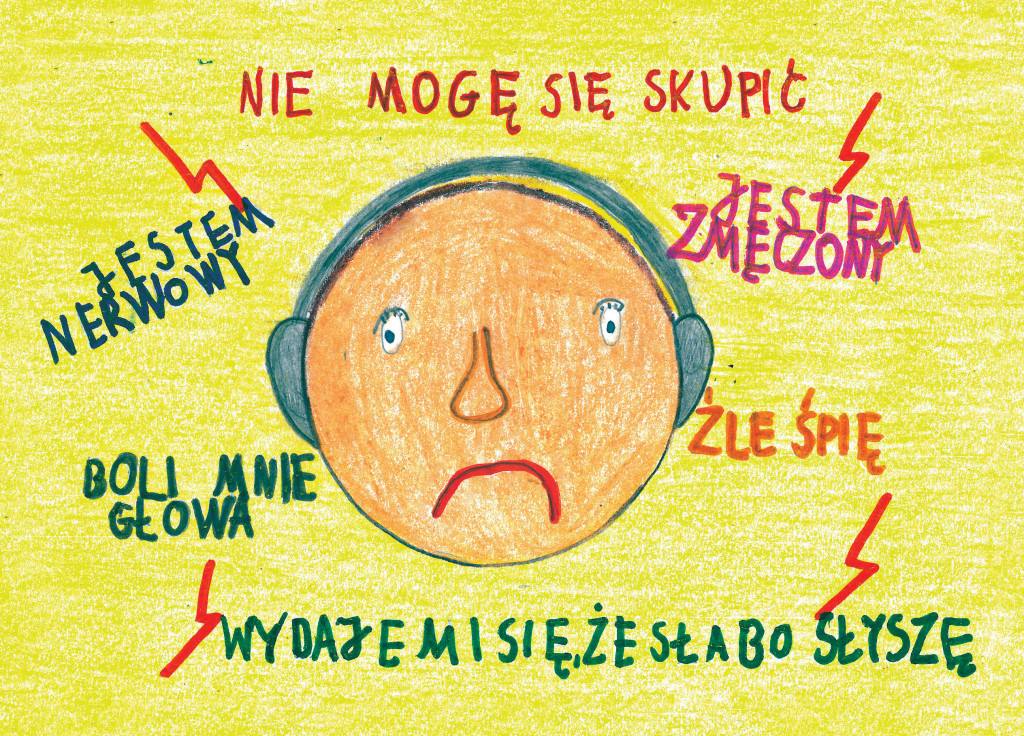 NIE MOGĘ SIĘ SKUPIĆ
JESTEM
NERWOWY
JESTEM
ZMĘCZONY
BOLI MNIE
GŁOWA
ŹLE ŚPIĘ
WYDAJE MI SIĘ, ŻE SŁABO SŁYSZĘ